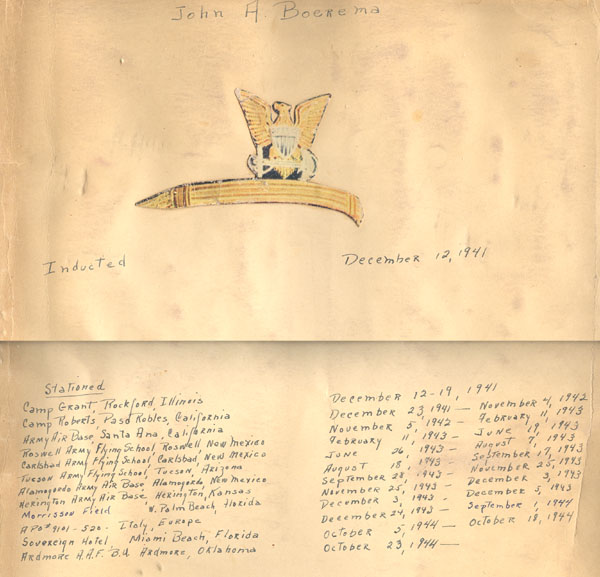 John A. Boerema
Inducted December 12, 1941
Stationed
Camp Grant, Rockford, Illinois December 12-19, 1941
Camp Roberts, Paso Robles, California December 23, 1941 — November 4, 1942
Army Air Base, Santa Ana, California November 5, 1942 — February 11, 1943
Roswell Army Flying School Roswell New Mexico February 11, 1943 — June 19, 1943
Carlsbad Army Flying School Carlsbad, New Mexico June 26, 1943 — August 7, 1943
Tucson Army Flying School, Tucson, Arizona August 18, 1943 — September 17, 1943
Alamogordo Army Air Base Alamogordo, New Mexico September 28, 1943 — November 25, 1943
Herington Army Air Base Herington, Kansas November 25, 1943 — December 3, 1943
Morrisson Field W. Palm Beach, Florida December 3, 1943 — December 5, 1943
APO# 9101 - 520 - Italy, Europe December 24, 1943 — September 1, 1944
Sovereign Hotel Miami Beach, Florida October 5, 1944 — October 18, 1944
Ardmore A.A.F. B.U. Ardmore, Oklahoma October 23, 1944 —